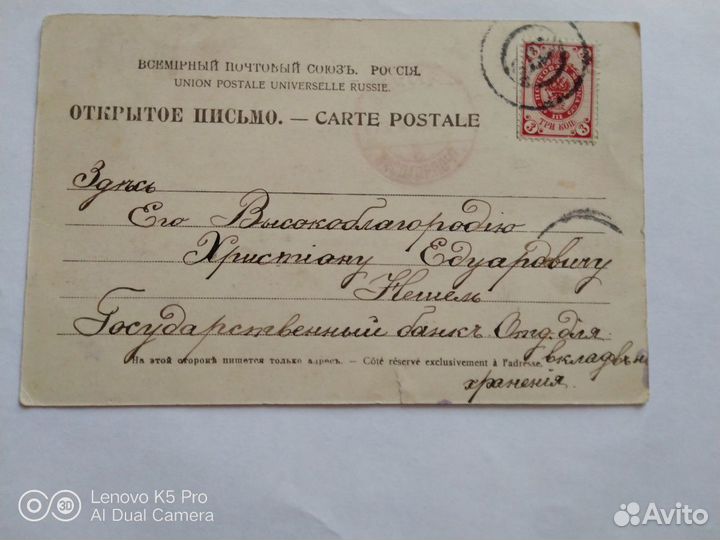 ВСЕМІРНЫЙ ПОЧТОВЫЙ СОЮЗЪ. РОССІЯ.
UNION POSTALE UNIVERSELLE RUSSIE.
ОТКРЫТОЕ ПИСЬМО. — CARTE POSTALE
3 ТРИ КОП. 3
Здѣсь
Его Высокоблагородію
Христіану Едуардовичу
Нешель
Государственный банкъ Отд. для
вкладовъ на
На этой сторонѣ пишется только адресъ. — Côté réservé exclusivement à l'adresse.
храненія
Lenovo K5 Pro
AI Dual Camera
Avito